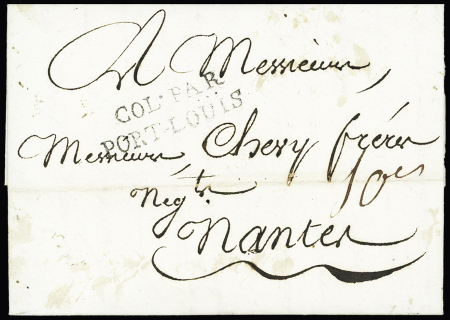 A Messieurs,
COL·PAR
PORT-LOUIS
Messieurs, Chevy frères
Negts.
Nantes